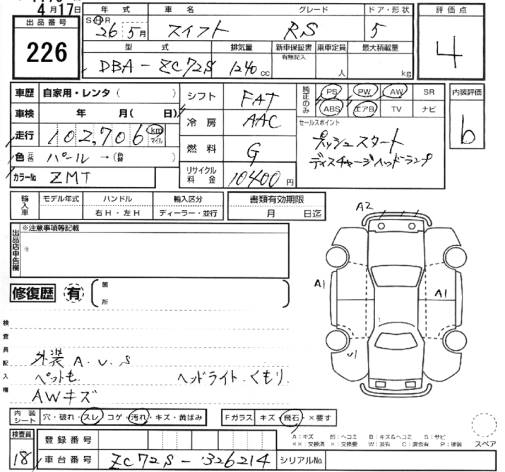 4月17日
出品番号 226
年式 S H 26年5月 車名 スイフト グレード RS ドア・形状 5
型式 DBA-ZC72S 排気量 1240cc 新車保証書 有無記入 乗車定員 人 最大積載量 kg
評価点 4
車歴 自家用・レンタ ( )
車検 年 月 ( 日)
走行 102,706 km マイル
色 パール →
カラーNo ZMT
シフト FAT
冷房 AAC
燃料 G
リサイクル料金 10400円
純正のみ PS PW AW SR
ABS エアB TV ナビ
内装評価 b
セールスポイント
プッシュスタート
ディスチャージヘッドランプ
輸入車 モデル年式 ハンドル 右H・左H 輸入区分 ディーラー・並行
書類有効期限 月 日迄
出品店申告欄 ※注意事項等記載
修復歴 有 箇所
A2
A1
A1
検査員記入欄
外装 A.U.S
ペットモ ヘッドライト くもり
AWキズ
内装シート 穴・破れ・スレ コゲ・汚れ・キズ・黄ばみ Fガラス キズ・飛石・×要す
A:キズ B:キズ&ヘコミ S:サビ
スペア
検査員 18
登録番号
車台番号 ZC72S-326214 シリアルNo